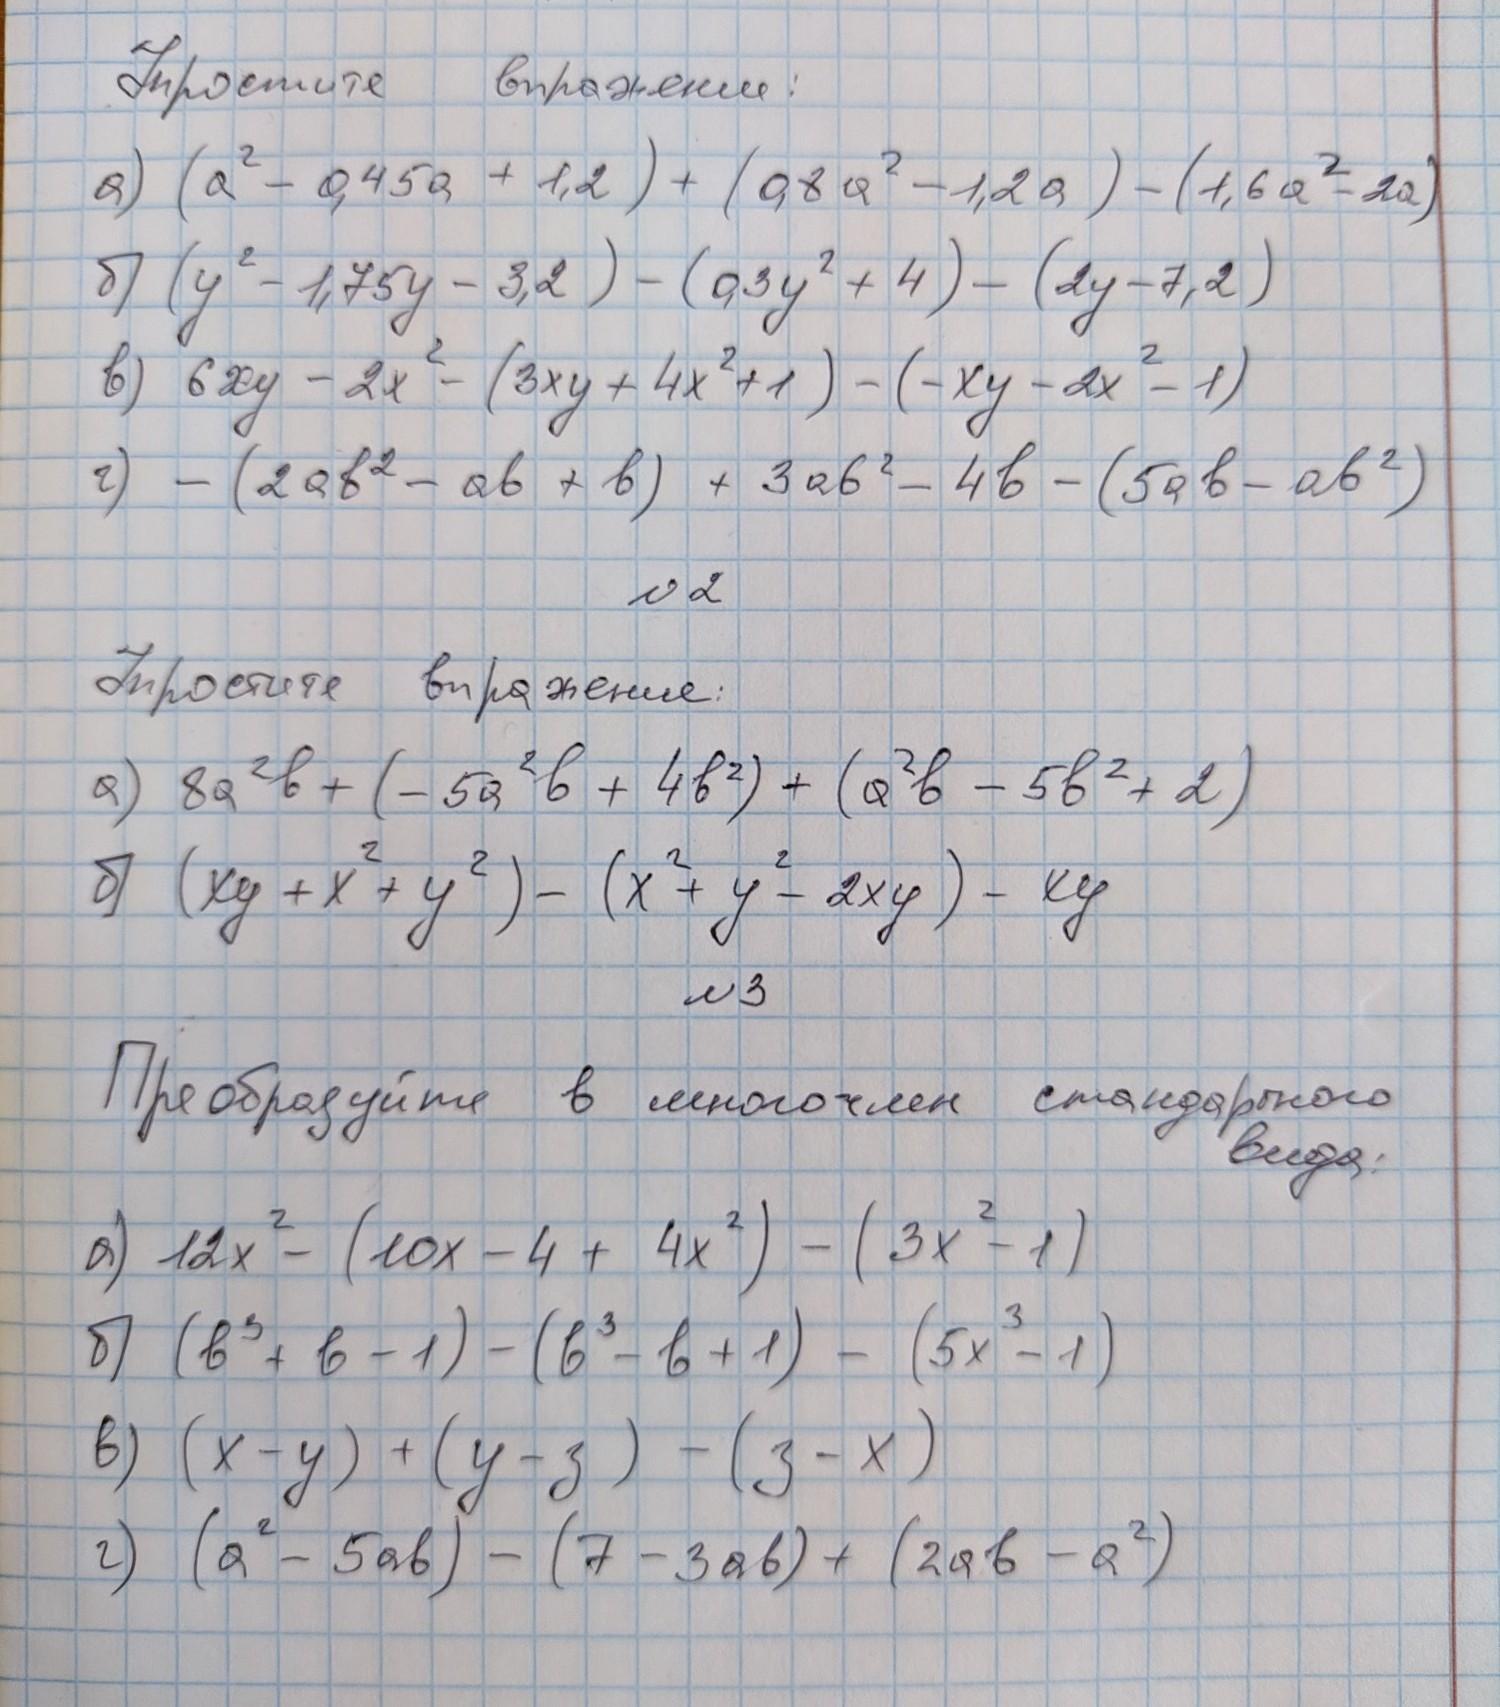 Упростите выражение:
а) (a² - 0,45a + 1,2) + (0,8a² - 1,2a) - (1,6a² - 2a)
б) (y² - 1,75y - 3,2) - (0,3y² + 4) - (2y - 7,2)
в) 6xy - 2x² - (3xy + 4x² + 1) - (-xy - 2x² - 1)
г) - (2ab² - ab + b) + 3ab² - 4b - (5ab - ab²)
№2
Упростите выражение:
а) 8a²b + (-5a²b + 4b²) + (a²b - 5b² + 2)
б) (xy + x² + y²) - (x² + y² - 2xy) - xy
№3
Преобразуйте в многочлен стандартного
вида:
а) 12x² - (10x - 4 + 4x²) - (3x² - 1)
б) (b³ + b - 1) - (b³ - b + 1) - (5x³ - 1)
в) (x - y) + (y - z) - (z - x)
г) (a² - 5ab) - (7 - 3ab) + (2ab - a²)